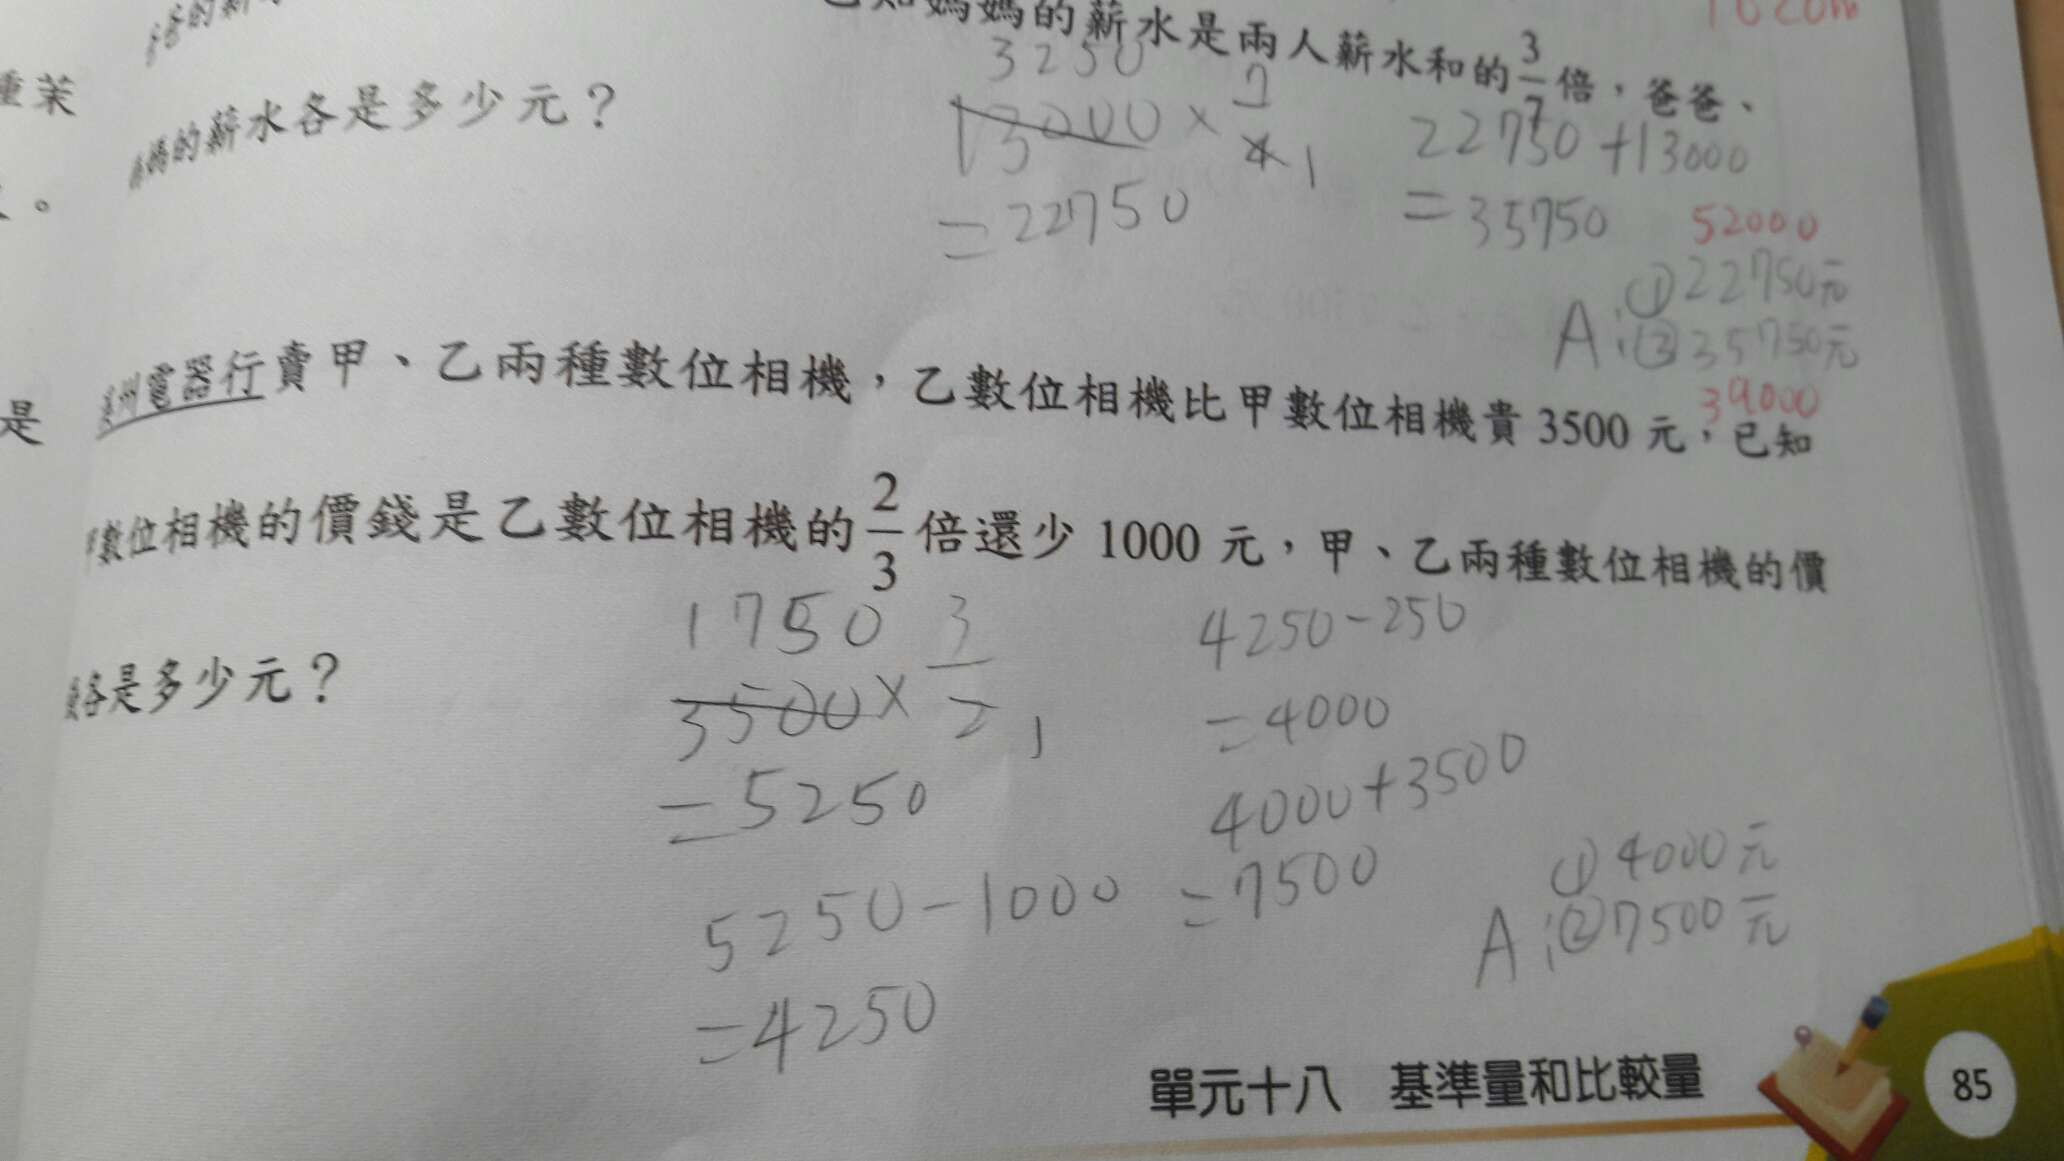 媽媽的薪水是兩人薪水和的3/7倍,爸爸、
媽的薪水各是多少元?
種茉
。
是
3250
13000×7/4 1
=22750
22750+13000
=35750
52000
A:①22750元
②35750元
39000
州電器行賣甲、乙兩種數位相機,乙數位相機比甲數位相機貴3500元,已知
數位相機的價錢是乙數位相機的2/3倍還少1000元,甲、乙兩種數位相機的價
各是多少元?
1750
3500×3/2 1
=5250
5250-1000
=4250
4250-250
=4000
4000+3500
=7500
A:①4000元
②7500元
單元十八 基準量和比較量
85